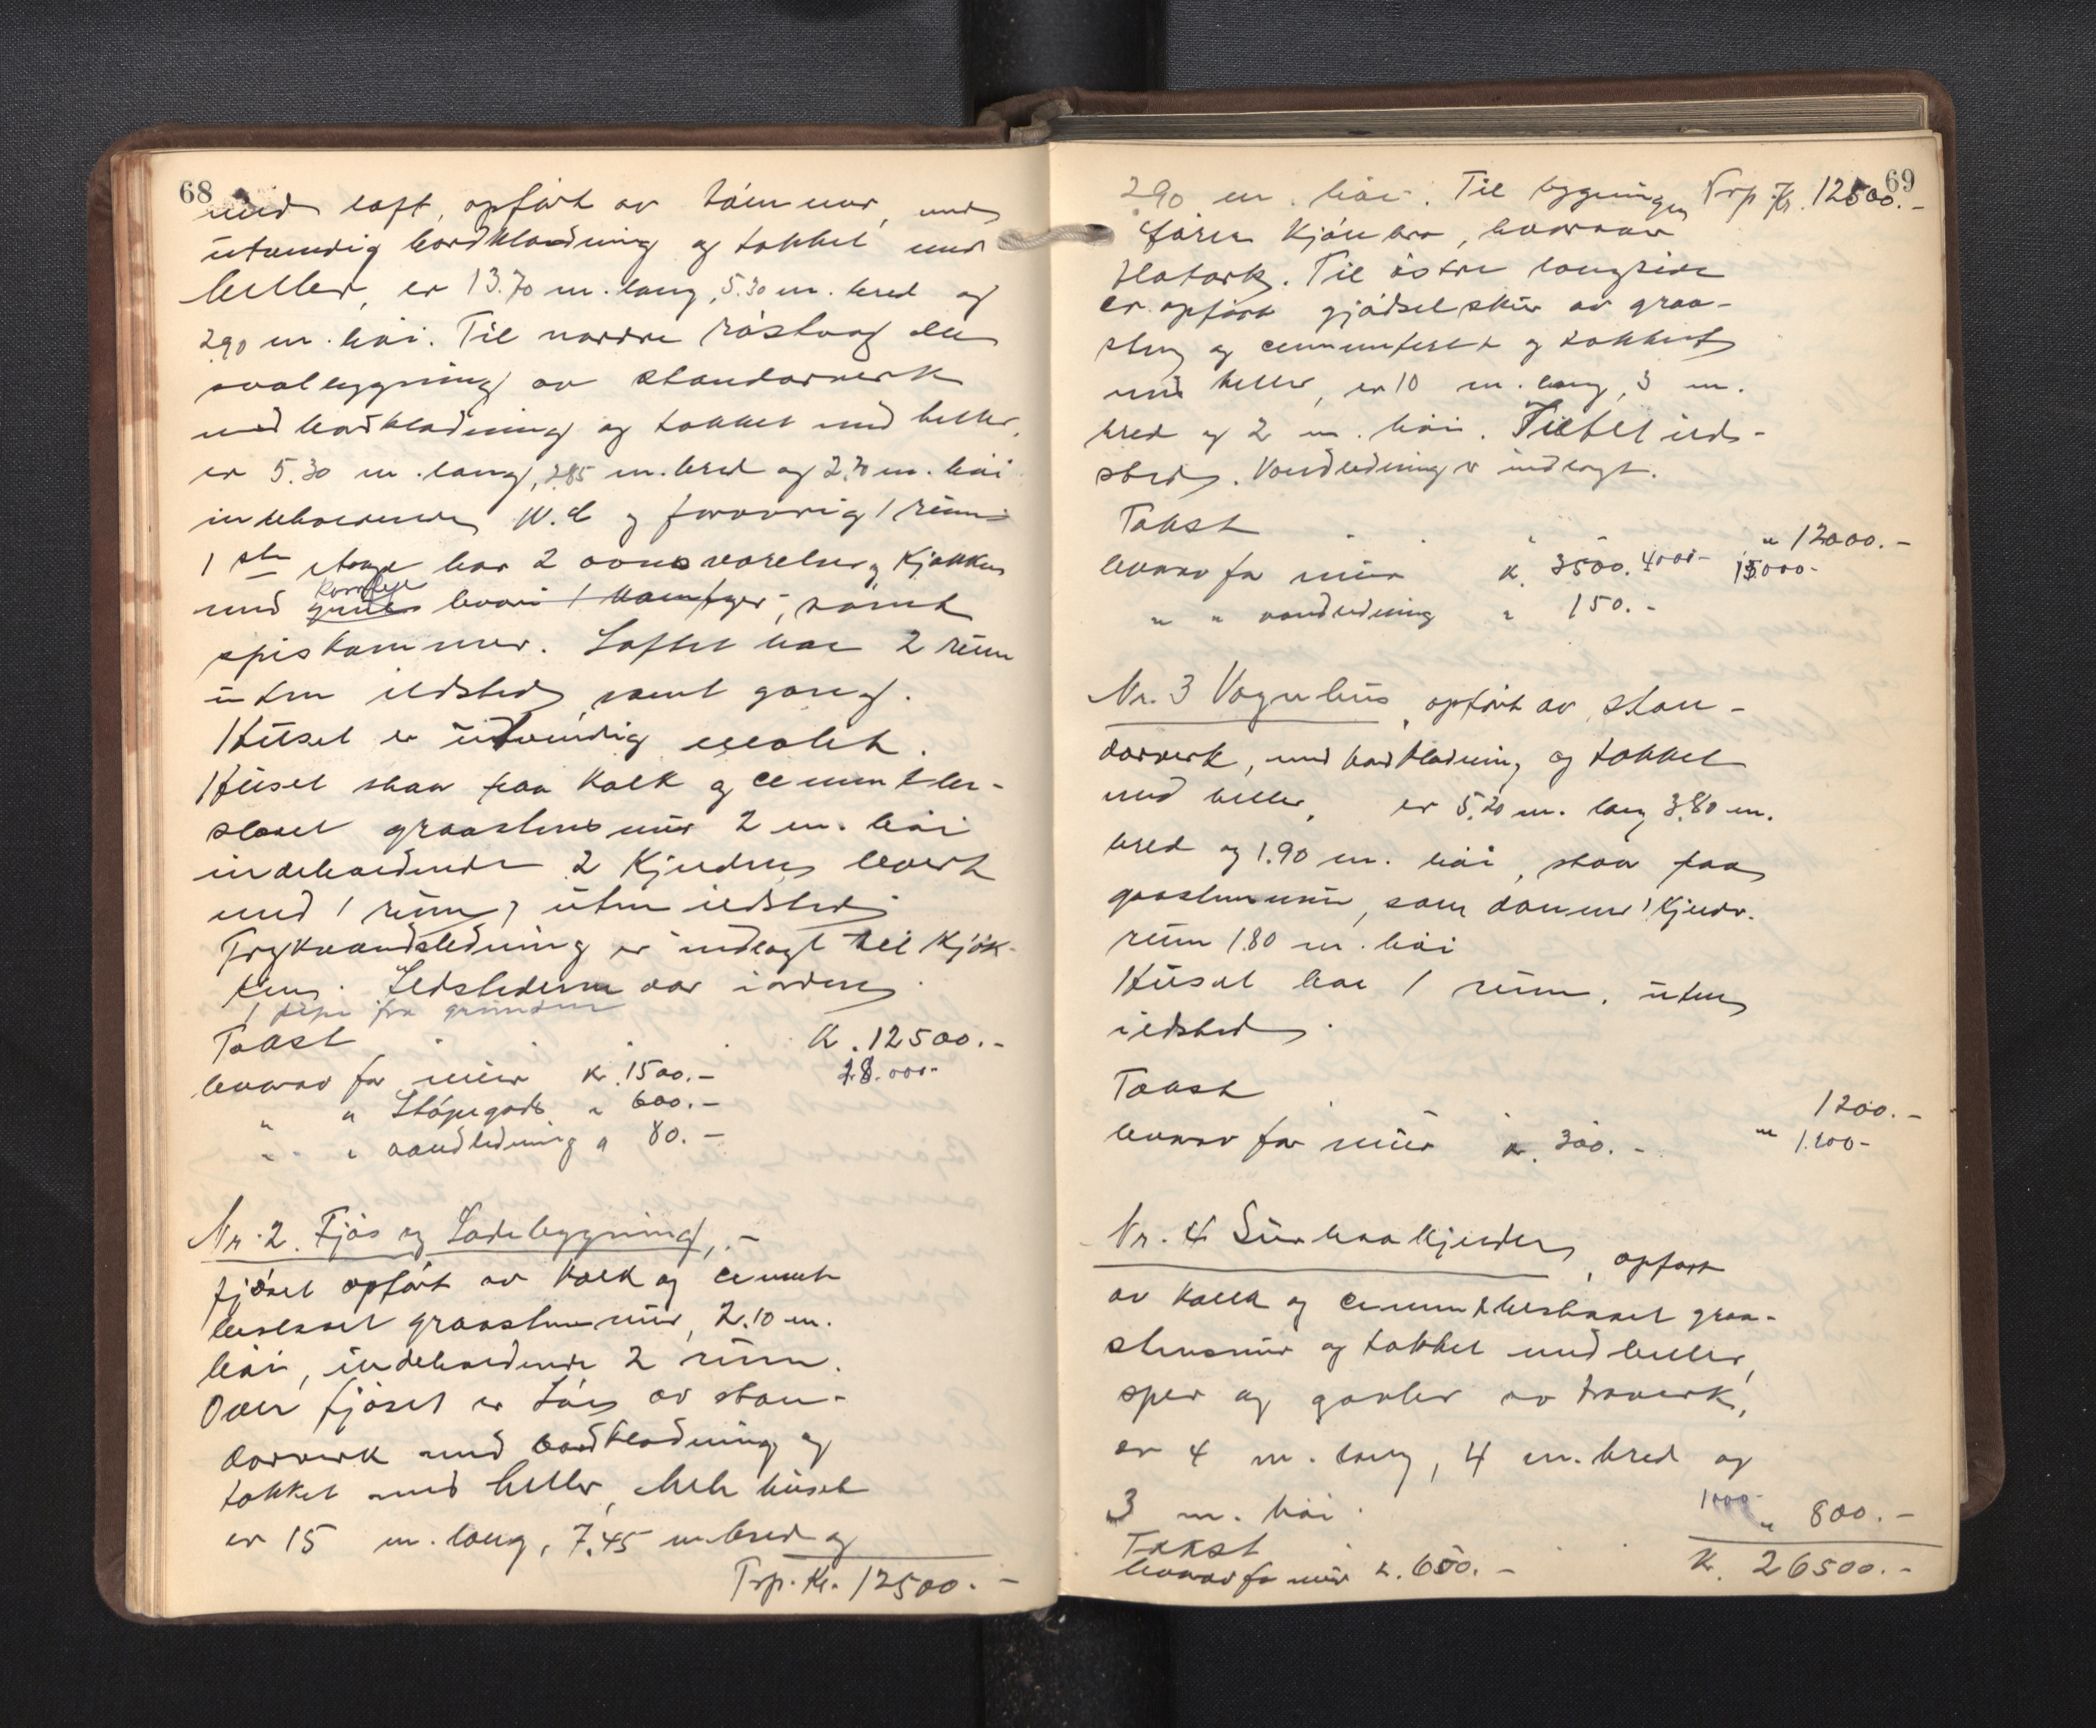 68
med loft, opført av tømmer, med
utvendig bordklædning og tækket med
heller, er 13.70 m. lang, 5.30 m. bred og
2.90 m. høi. Til nordre røstvæg er
svalbygning av standarverk
med bordklædning og tækket med heller,
er 5.30 m. lang, 2.85 m. bred og 2.70 m. høi
indeholdende W.C og forøvrig 1 rum
1 ste etage har 2 ovnsværelser, kjøkken
Korridor
med gang hvori 1 kamfyr, samt
spiskammer. Loftet har 2 rum
uten ildsted samt gang.
Huset er utvendig malet.
Huset staar paa kalk og cement ber-
slaaet graastensmur 2 m. høi
indeholdende 2 kjeldere hvert
med 1 rum, uten ildsted
Trykvandsledning er indlagt til kjøk-
ken. Ildstederne var i orden.
1 pipe fra grunden
Takst K. 12500.-
hvorav for mur kr. 1500.- 28.000-
" " Støpegods " 600.-
" " vandledning " 80.-
Nr. 2. Fjøs og Ladebygning,.-
fjøset opført av kalk og cement
berslaaet graastensmur, 2.10 m.
høi, indeholdende 2 rum.
Over fjøset er Løe av stan-
darverk med bordklædning og
tækket med heller, hele huset
er 15 m. lang, 7.45 m bred og
Trp. Kr. 12500.-
69
2.90 m. høi. Til bygningen Trp. Kr. 12500.-
fører kjørebro, hvorav
Til østre langside
er opført gjødselskur av graa-
sten og cementert og tækket
med heller, er 10 m. lang, 3 m.
bred og 2 m. høi. Tiltet ilds-
sted. Vandledning er indlagt.
Takst " 12000.-
hvorav for mur k. 3500. 4000- 15000-
" " vandledning " 150.-
Nr. 3 Vognhus, opført av stan-
darverk, med bordklædning og tækket
med heller, er 5.20 m. lang 3.80 m.
bred og 1.90 m. høi, staar paa
graastensmur, som danner 1 kjelder-
rum 1.80 m. høi
Huset har 1 rum, uten
ildsted.
Takst 1200.-
hvorav for mur kr. 300.- " 1.200-
Nr. 4 Surhøkjelder, opført
av kalk og cement berslaaet graa-
stensmur og tækket med heller,
sper og gavler av træverk,
er 4 m. lang, 4 m. bred og
3 m. høi. 1000-
Takst " 800.-
hvorav for mur k. 600.- Kr. 26500.-